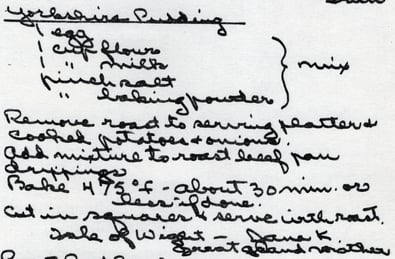 Yorkshire Pudding
1 egg
1 cup flour
1 " milk
pinch salt
" baking powder
} mix
Remove roast to serving platter &
cooked potatoes & onions.
Add mixture to roast beef pan
drippings
Bake 475°f - about 30 min. or
less if done.
Cut in squares & serve with roast.
Isle of Wight - Jane K
Great grand mother